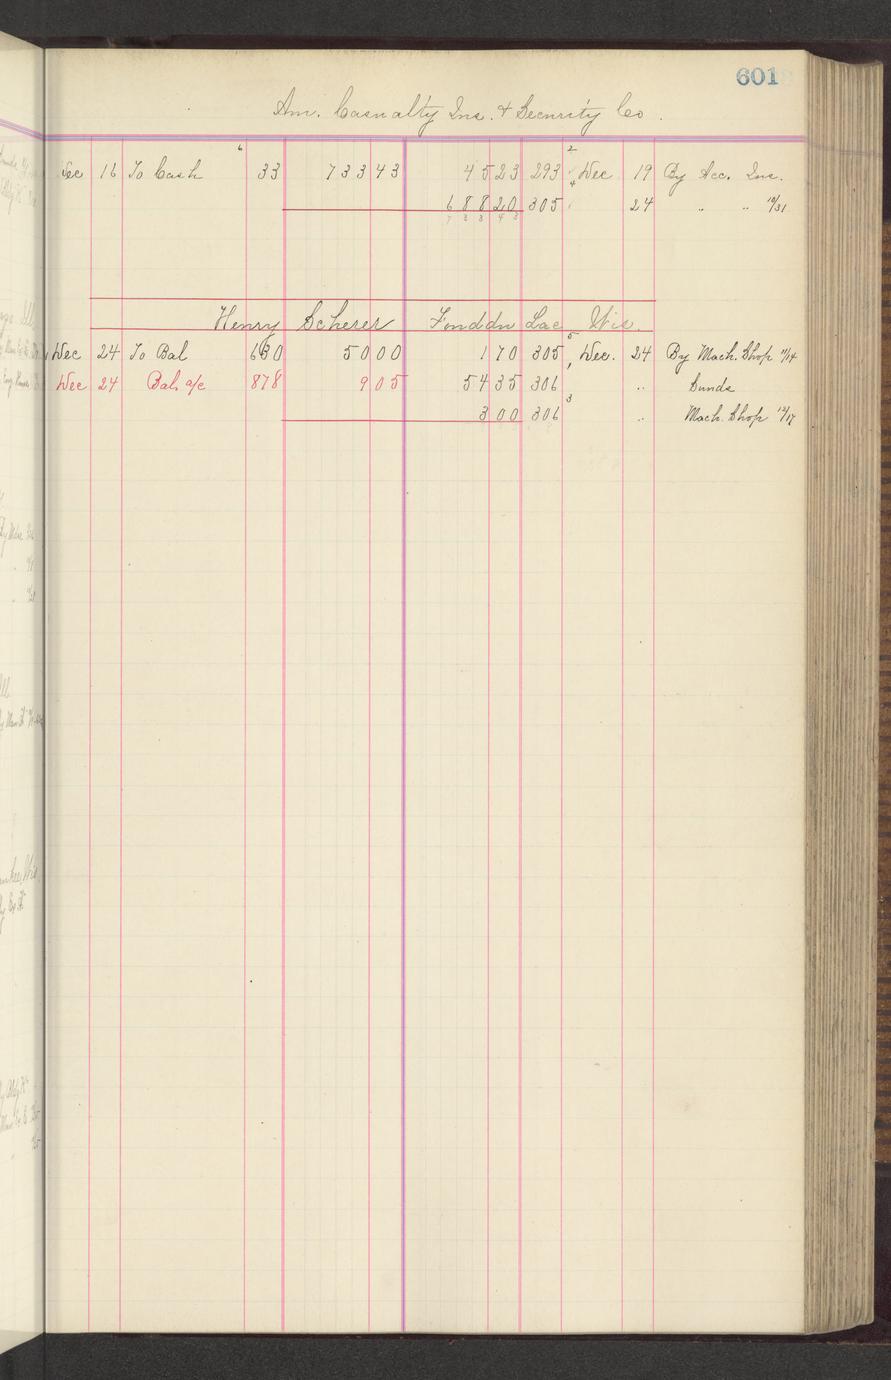 601
Am. Casualty Ins. & Security Co.
Dec 16 To Cash 6 33 733 43 45 23 293 2 Dec 19 By Acc. Ins.
688 20 305 4 24 " " 10/31
733 43
Henry Scherer Fonddu Lac Wis.
Dec 24 To Bal 630 50 00 1 70 305 5 Dec. 24 By Mach. Shop 11/14
Dec 24 Bal. a/c 878 9 05 54 35 306 1 " Sunds
3 00 306 3 " Mach. Shop 12/17